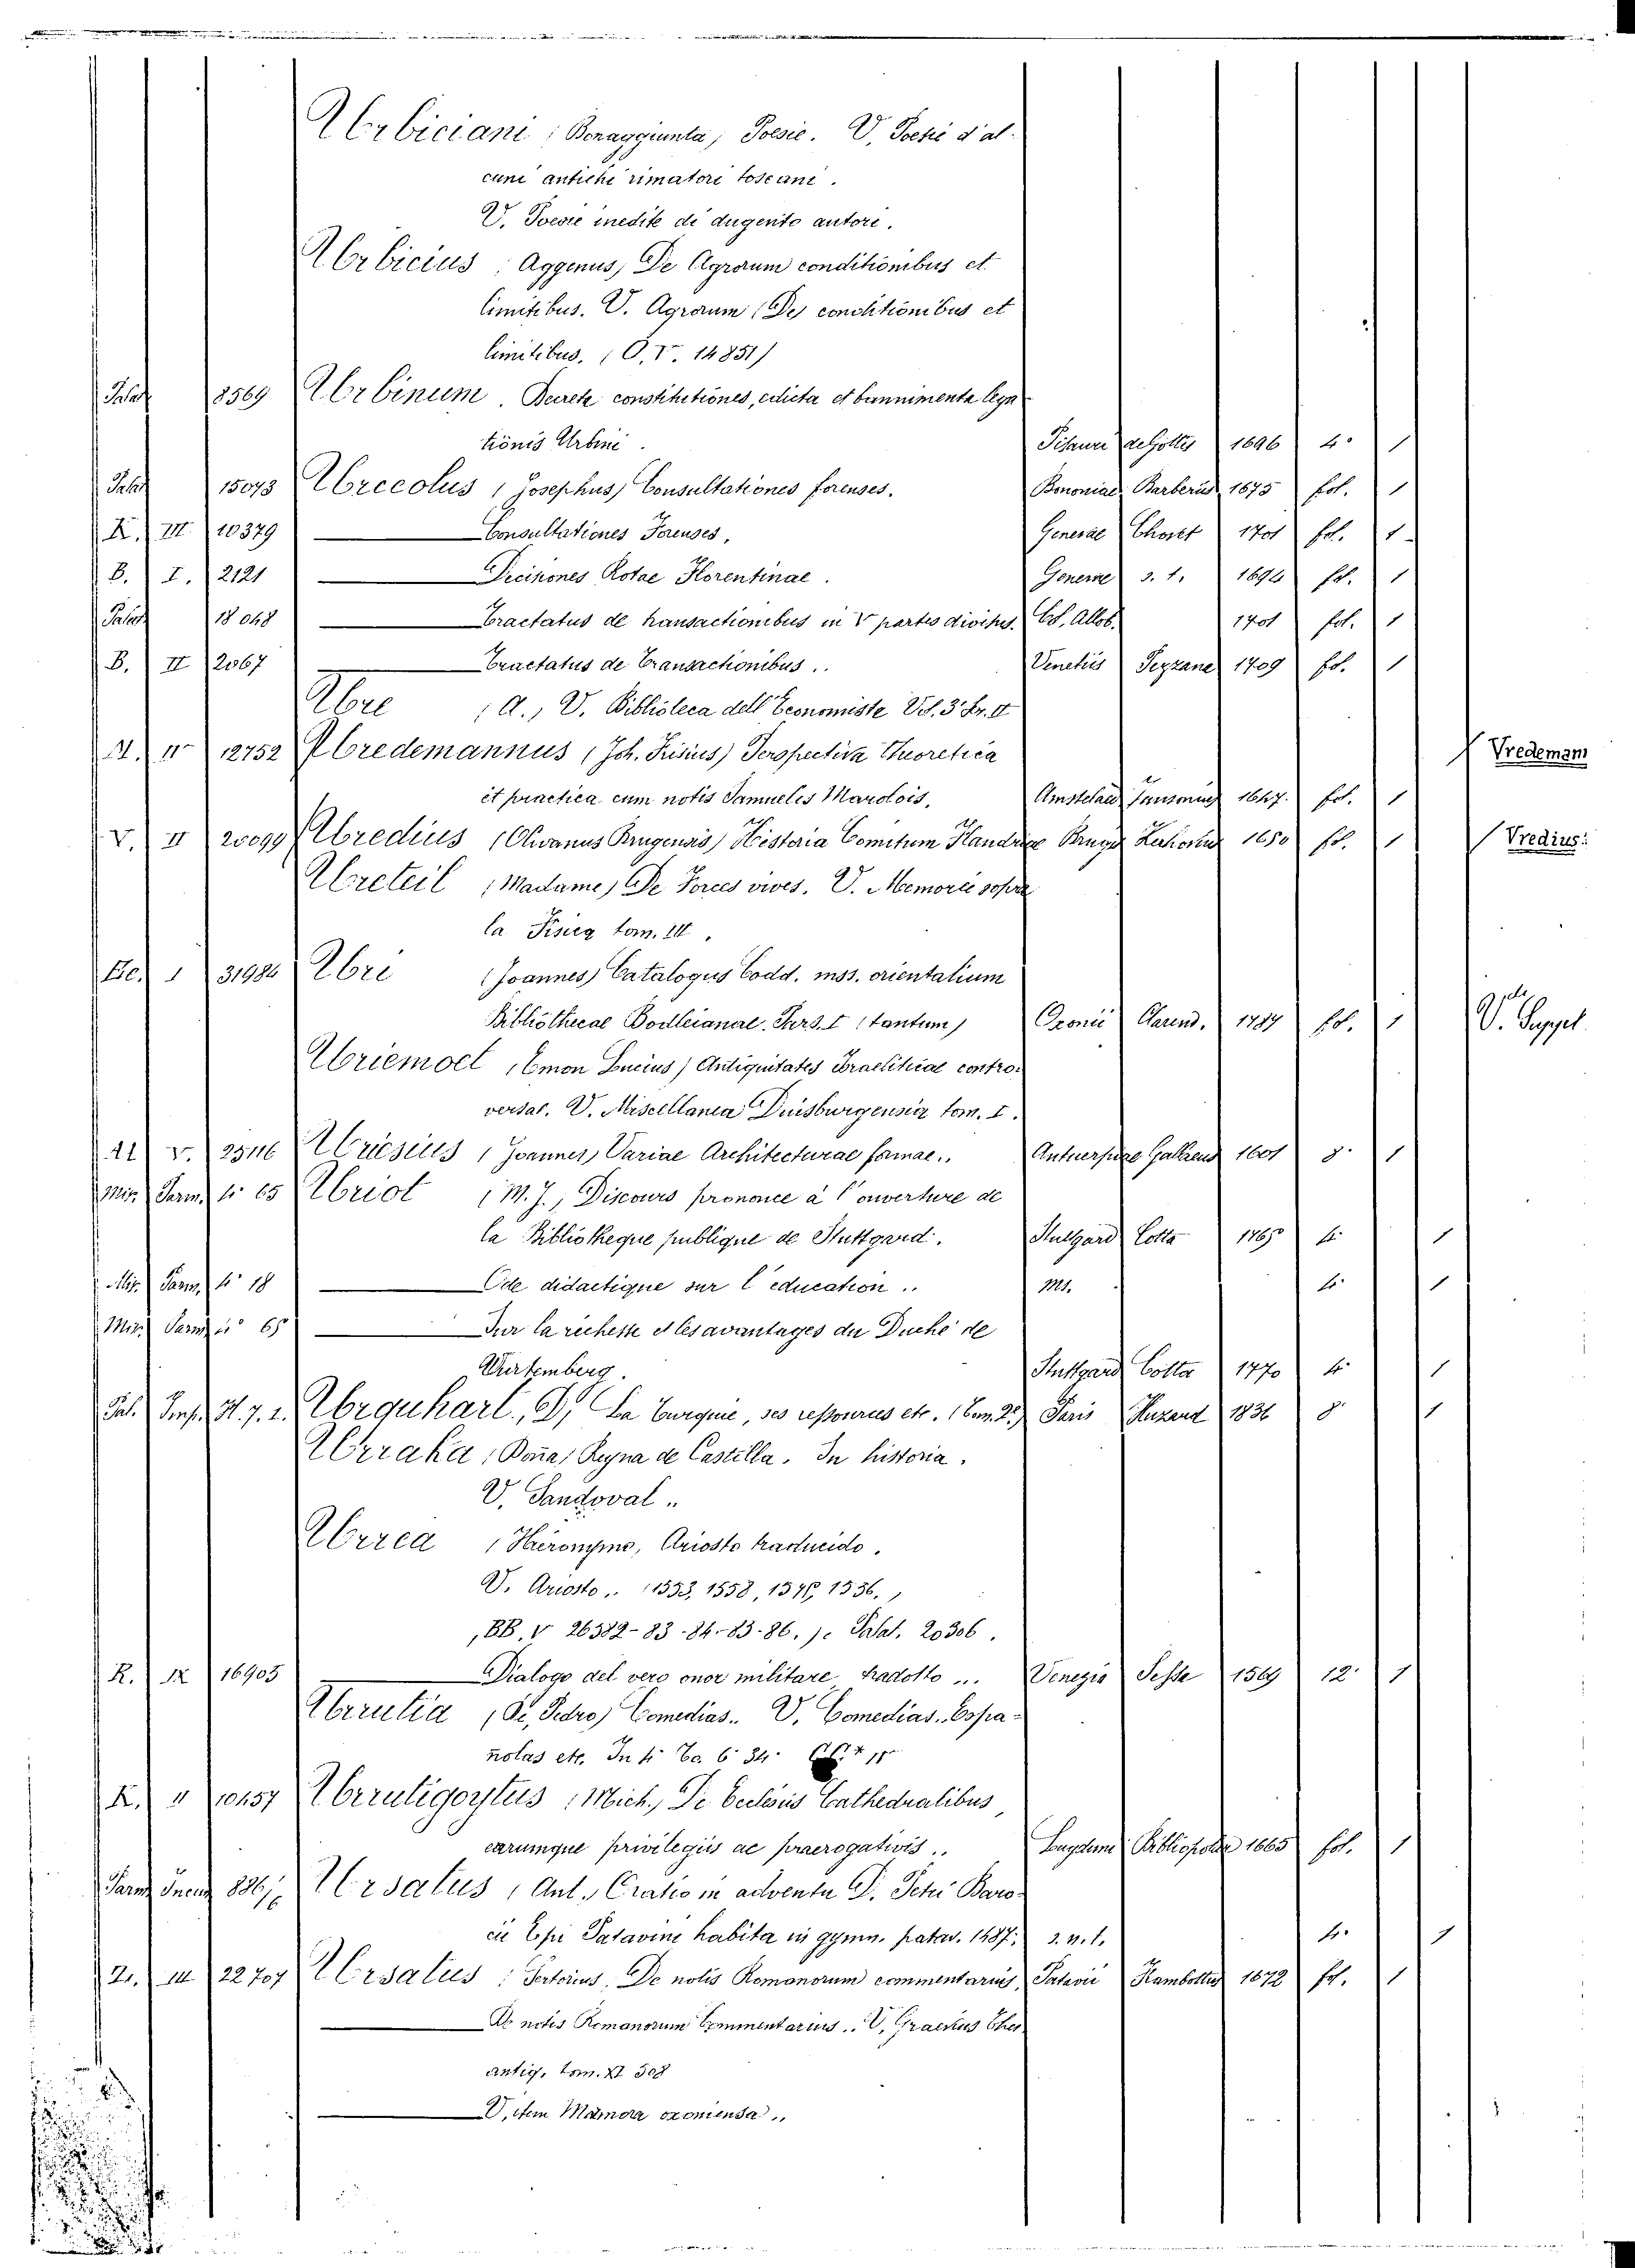 Urbiciani (Bonaggiunta) Poesie. V. Poesie d'al-
cuni antichi rimatori toscani.
V. Poesie inedite di dugento autori.
Urbicius (Aggenus) De Agrorum conditionibus et
limitibus. V. Agrorum (De) conditionibus et
limitibus. (O. V. 14851)
Palat 8569 Urbinum. Decreta constitutiones, edicta et bannimenta lega
tionis Urbini. Pisauri de Gottis 1696 4° 1
Palat 15073 Urceolus (Josephus) Consultationes forenses. Bononiae Barberius 1675 fol. 1
K. III 10379 Consultationes Forenses, Genevae Chouet 1701 fol. 1
B. I. 2121 Decisiones Rotae Florentinae. Genevae s. t. 1694 fol. 1
Palat 18048 Tractatus de transactionibus in V partes divisus. Col. Allob. 1701 fol. 1
B. II 2067 Tractatus de Transactionibus.. Venetiis Pezzana 1709 fol. 1
Ure (A.) V. Biblioteca dell' Economista Vol. 3° Tr. II
12752 Uredemannus (Joh. Frisius) Perspectiva Theoretica Vredemann
et practica cum notis Samuelis Marolois, Amstelaed Jansonius 1647. fol. 1
V. II 20099 Uredius (Olivarius Brugensis) Historia Comitum Flandriae Brugis 1650 fol. 1 Vredius:
Ureteil (Madame) De Forces vives. V. Memorie sopra
la Fisica tom. III.
1 31984 Uri (Joannes) Catalogus Codd. mss. orientalium
Bibliothecae Bodleianae. Pars I (tantum) Oxonii Clarend. 1787 fol. 1 V. Suppel
Uriemoet (Emon Lucius) Antiquitates Israeliticae contro-
versae. V. Miscellanea Duisburgensia tom. I.
V. 25116 Uriesius (Joannes) Variae Architecturae formae.. Antuerpiae Galleus 1601 8° 1
Mis. Parm. 4° 65 Uriot (M. J.) Discours prononcé à l'ouverture de
la Bibliotheque publique de Stuttgard. Stutgard Cotta 1765 4° 1
Mis. Parm. 4° 18 Ode didactique sur l'education.. MS. 4° 1
Mis. Parm. 4° 65 Sur la richesse et les avantages du Duché de
Wurtemberg. Stuttgard Cotta 1770 4° 1
Pal. H. 7. 2. Urquhart, D, La Turquie, ses ressources etc. (Tom. 2.) Paris 1836 8° 1
Urraka (Doña) Reyna de Castilla. In historia.
V. Sandoval..
Urrea (Hieronymo) Ariosto traducido.
V. Ariosto.. (1553, 1558, 1556.)
(BB. V 26382-83-84-85-86.). Palat. 20306.
R. IX 16905 Dialogo del vero onor militare tradotto ... Venezia Sessa 1569 12° 1
Urrutia (De, Pedro) Comedias.. V. Comedias. Espa-
ñolas etc. In 4° 34.
K. II 10457 Urrutigoytus (Mich.) De Ecclesiis Cathedralibus
earumque privilegiis ac praerogativis.. Lugduni 1665 fol. 1
Ursatus (Ant.) Oratio in adventu D. Petri Baro-
cii Epi Patavini habita in gymn. patav. 1487. s. n. t. 4° 1
III 22707 Ursatus (Sertorius) De notis Romanorum commentarius. Patavii Frambottus 1672 fol. 1
De notis Romanorum Commentarius.. V. Graevius Thes
antiq. tom. XI 508
V. item Mamora oxoniensa..